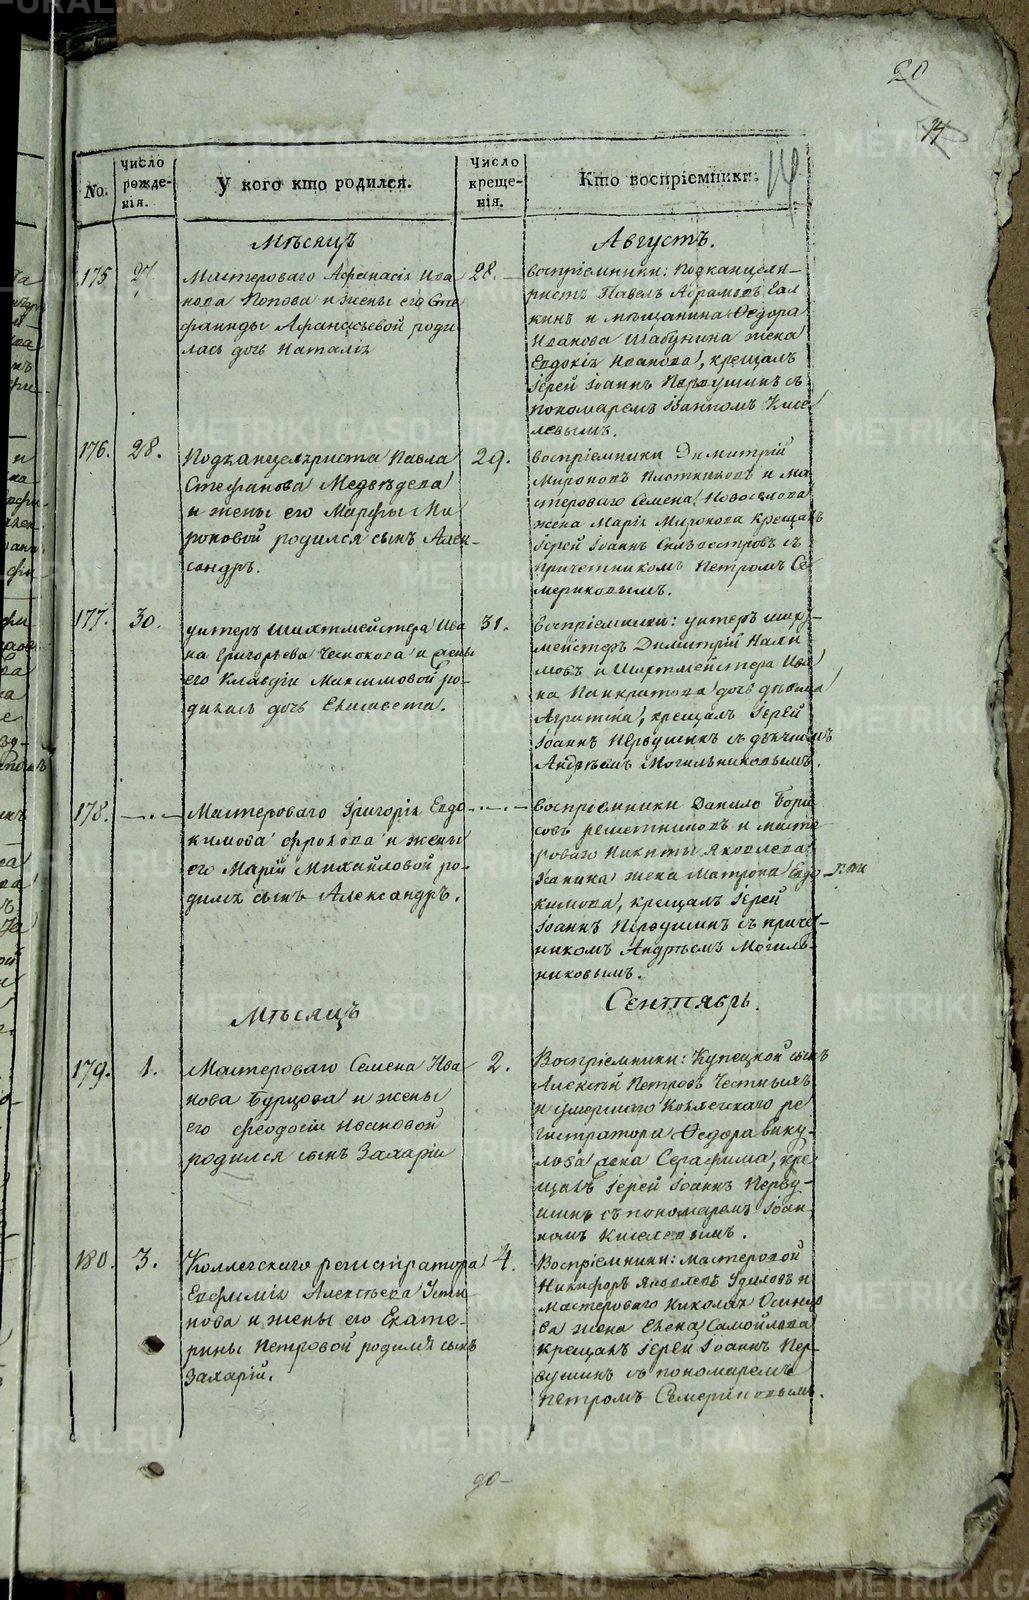 20
No.
Число рожде-нія.
У кого кто родился.
Число креще-нія.
Кто воспріемники.
Мѣсяцъ
Августъ.
175
27.
Мастероваго Афанасія Ива
нова Попова и жены его Сте
фаниды Афанасьевой роди
лась дочь Наталія
28.
воспріемники: подканцеля-
ристъ Павелъ Абрамовъ Гал
кинъ и мѣщанина Ѳедора
Иванова Шабунина жена
Евдокія Иванова, крещалъ
Іерей Іоаннъ Первушинъ съ
пономаремъ Іоанномъ Кисе
левымъ.
176.
28.
Подканцеляриста Павла
Стефанова Медвѣдева
и жены его Марфы Ми
роновой родился сынъ Алек-
сандръ.
29.
воспріемники Димитрій
Мироновъ Плотниковъ и ма
стероваго Семена Новоселова
жена Марія Миронова крещалъ
Іерей Іоаннъ Сильвестровъ съ
причетникомъ Петромъ Се
мериковымъ.
177.
30.
унтеръ шихтмейстера Ива
на Григорьева Чеснокова и жены
его Клавдіи Максимовой ро-
дилась дочь Елисавета.
31.
воспріемники: унтеръ шихт-
мейстеръ Димитрій Нали
мовъ и Шихтмейстера Ива
на Панкратова дочь дѣвица
Агрипина, крещалъ Іерей
Іоаннъ Первушинъ съ дьячкомъ
Андреемъ Могильниковымъ.
178.
Мастероваго Григорія Евдо
кимова Фролова и жены
его Маріи Михайловой ро-
дился сынъ Александръ.
воспріемники Данило Бори
совъ Решетниковъ и масте
роваго Никиты Яковлева
жена Матрона Евдо-
кимова, крещалъ Іерей
Іоаннъ Первушинъ съ причет-
никомъ Андреемъ Могиль-
никовымъ.
Мѣсяцъ
Сентябрь.
179.
1.
Мастероваго Семена Ива
нова Бурцова и жены
его Феодосіи Ивановой
родился сынъ Захарій
2.
Воспріемники: Купецкой сынъ
Алексѣй Петровъ Честныхъ
и умершаго Коллежскаго ре
гистратора Ѳедора Вику-
лова жена Серафима, кре
щалъ Іерей Іоаннъ Перву-
шинъ съ пономаремъ Іоан
номъ Киселевымъ.
180.
3.
Коллежскаго регистратора
Евфимія Алексѣева Усти
нова и жены его Екате-
рины Петровой родился сынъ
Захарій.
4.
Воспріемники: мастеровой
Никифоръ Яковлевъ Удиловъ и
мастероваго Николая Осинцо
ва жена Елена Самойлова
крещалъ Іерей Іоаннъ Пер-
вушинъ съ пономаремъ
Петромъ Семериковымъ.
90-
METRIKI.GASO-URAL.RU